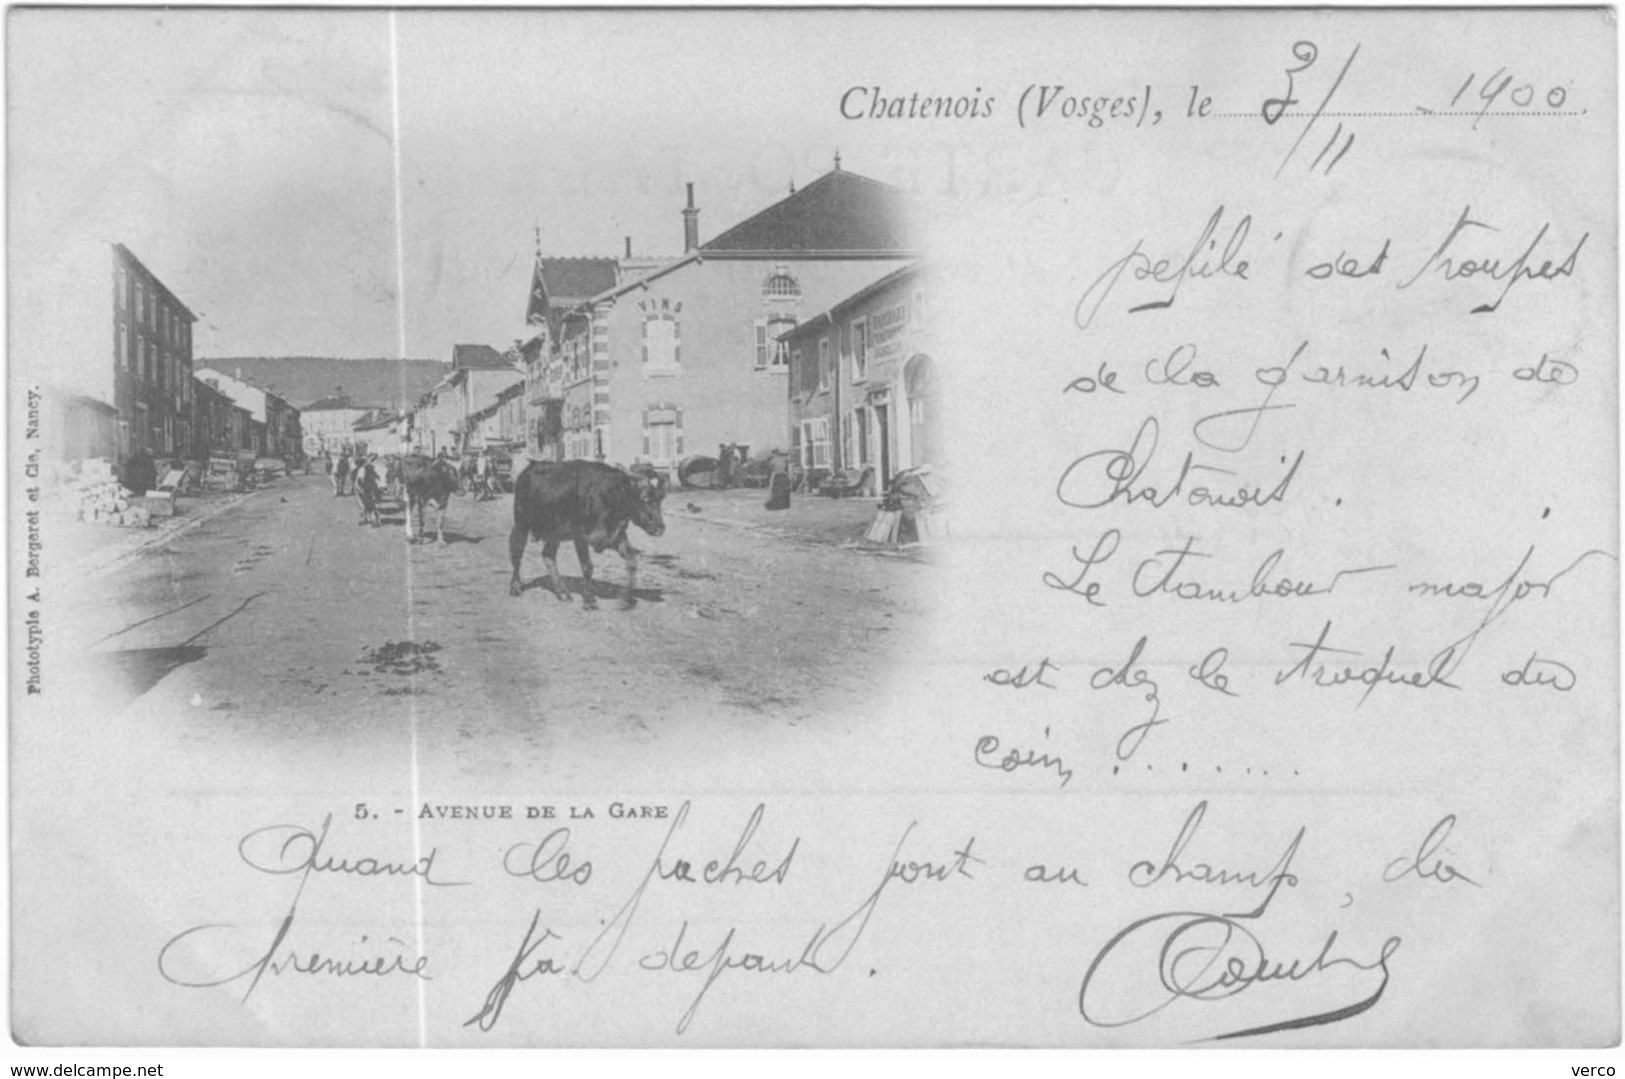 Chatenois (Vosges), le 3/11 - 1900
VINS
Phototypie A. Bergeret et Cie, Nancy.
des troupes
de la garnison de
Chatenois.
Le tambour major
est chez le troquet du
coin, ........
5. - AVENUE DE LA GARE
Quand les vaches vont au champ, la
première va devant.
www.delcampe.net
verco